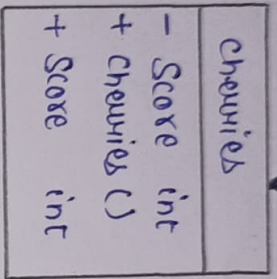 Cherries
- Score int
+ Cherries ()
+ Score int